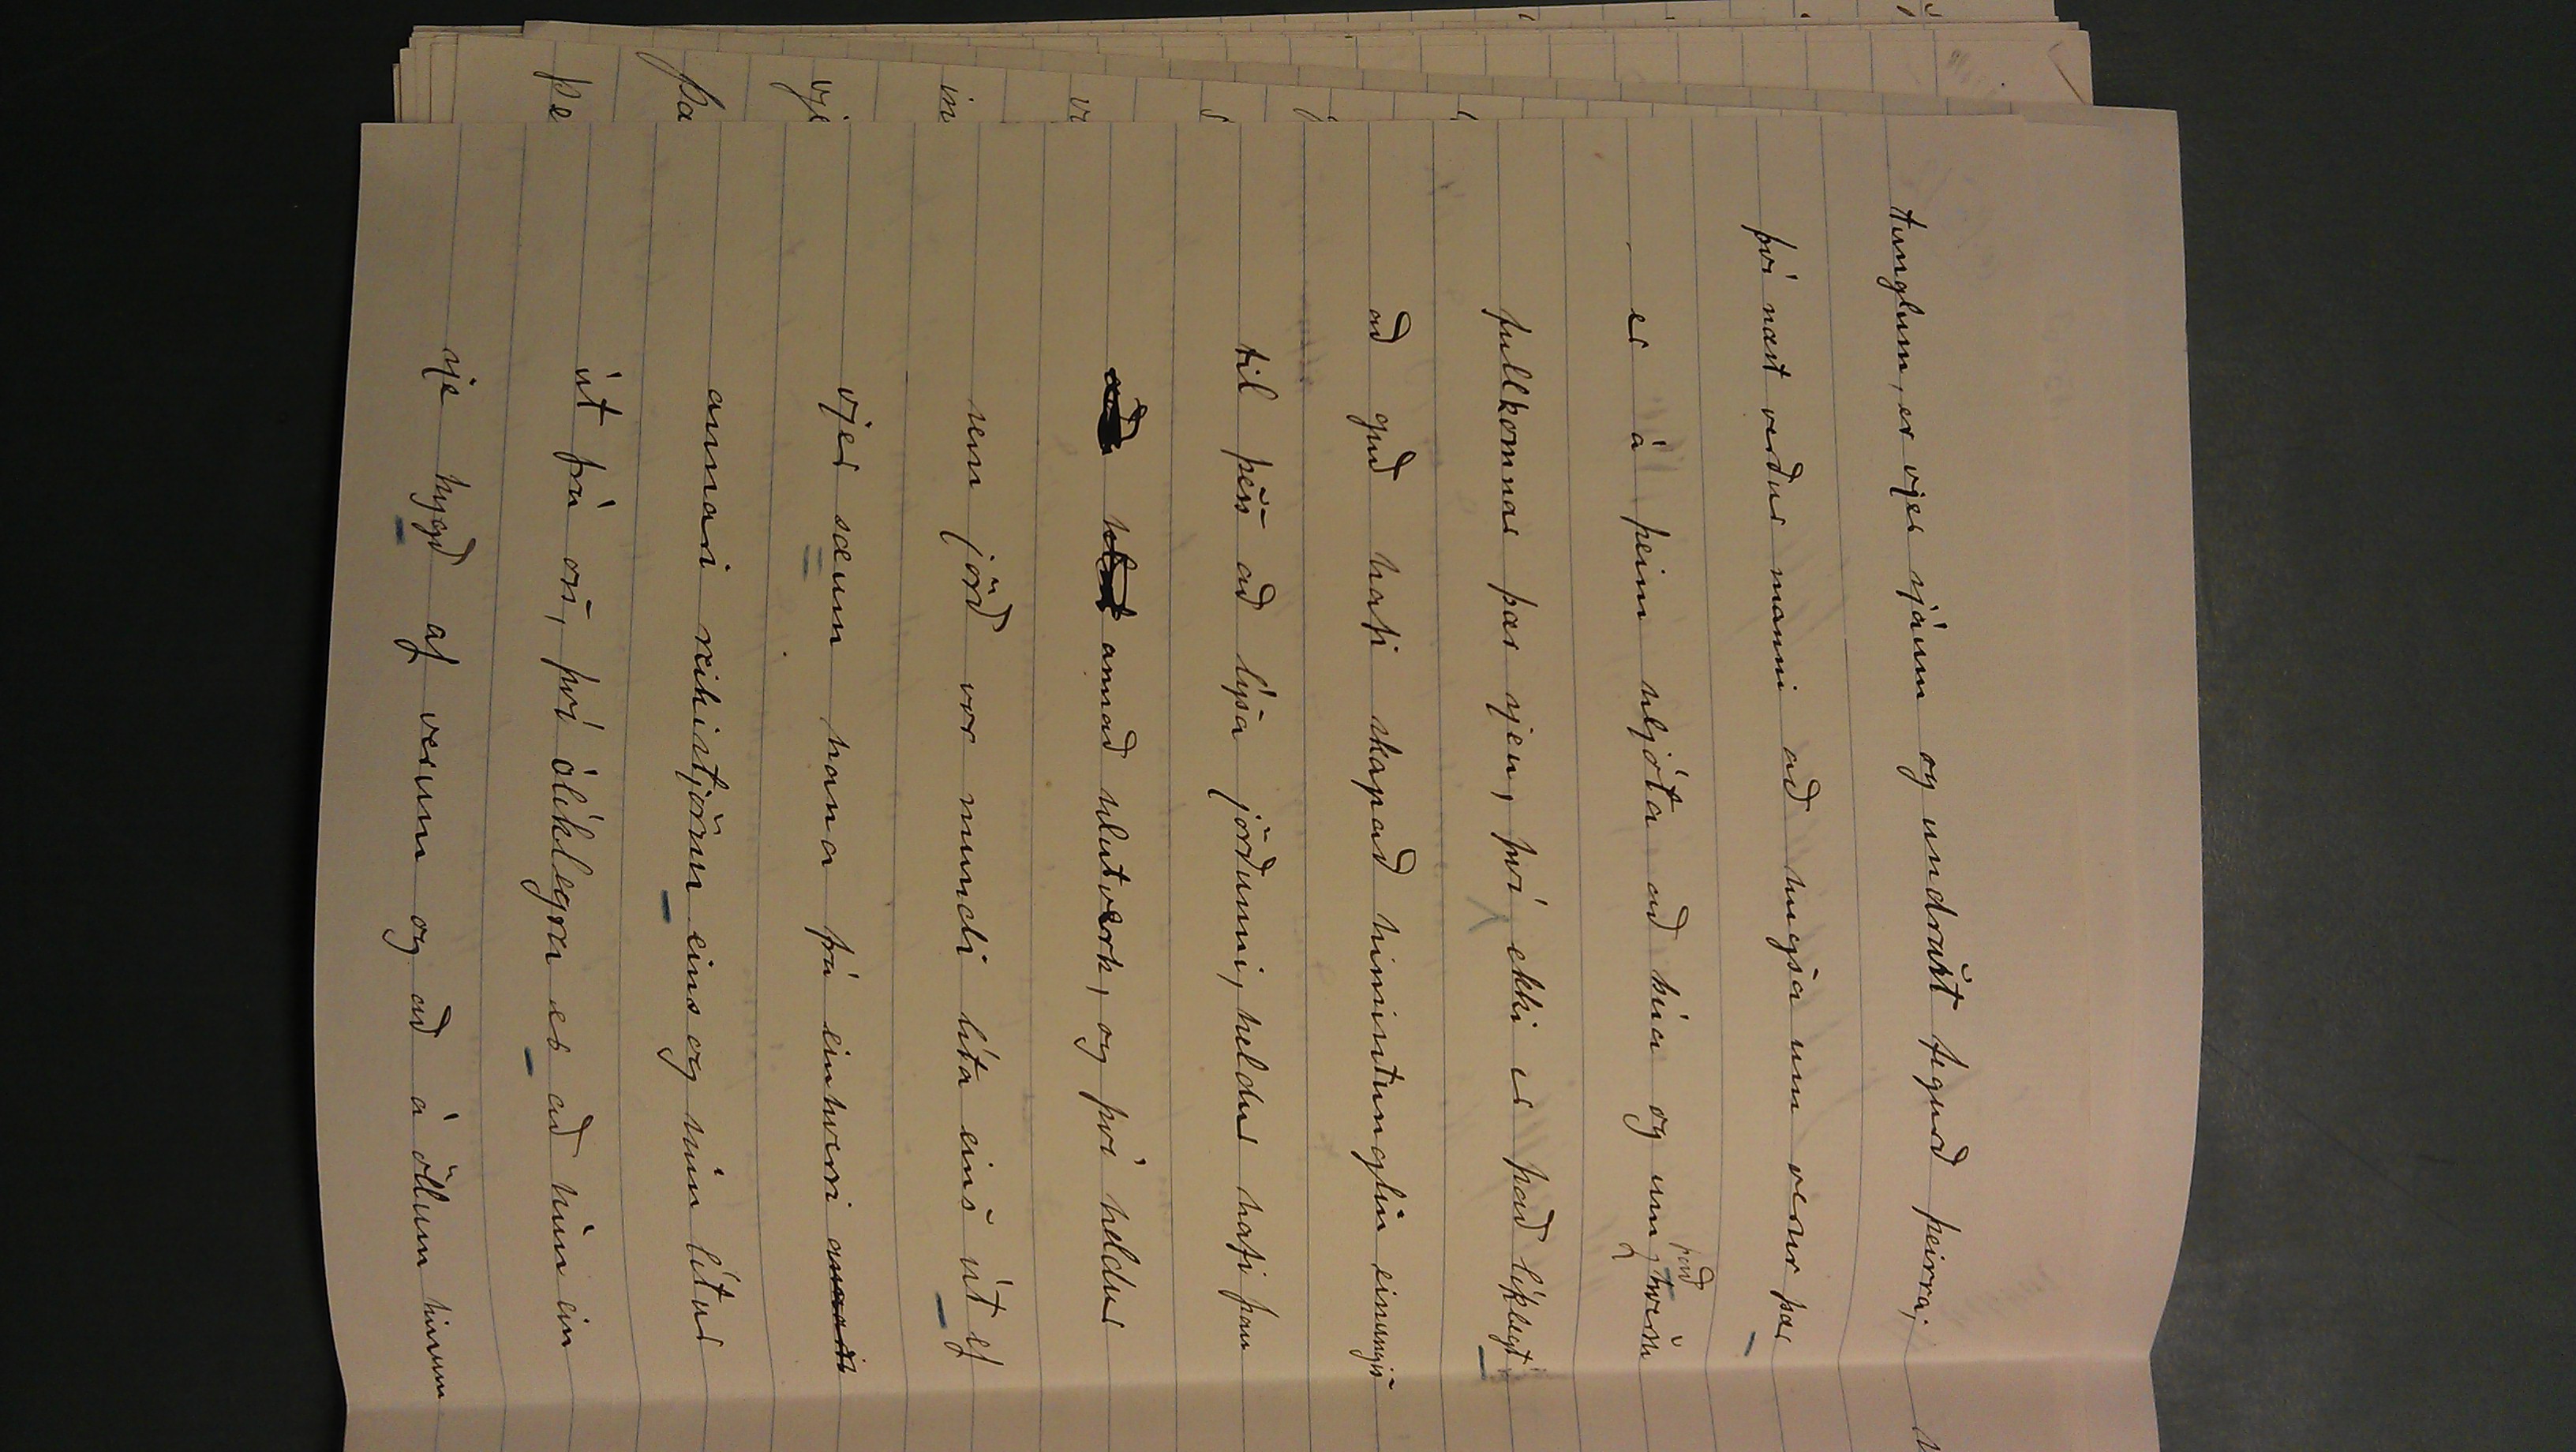 tunglum, er vjer sjáum og undrast fegurð þeirra;
því næst verður manni að hugsa um verur þær
er á þeim hljóta að búa og um það hversu
fullkomnar þær sjeu, því ekki er það líklegt
að guð hafi skapað himintunglin einungis
til þess að lýsa jörðunni, heldur hafi þau
annað hlutverk, og því heldur
sem jörð vor mundi líta eins út ef
vjer sæum hana frá einhverri annari
annari reikistjörnu eins og hún lítur
út frá oss, því ólíklegra er að hún ein
sje bygð af verum og að á öllum hinum